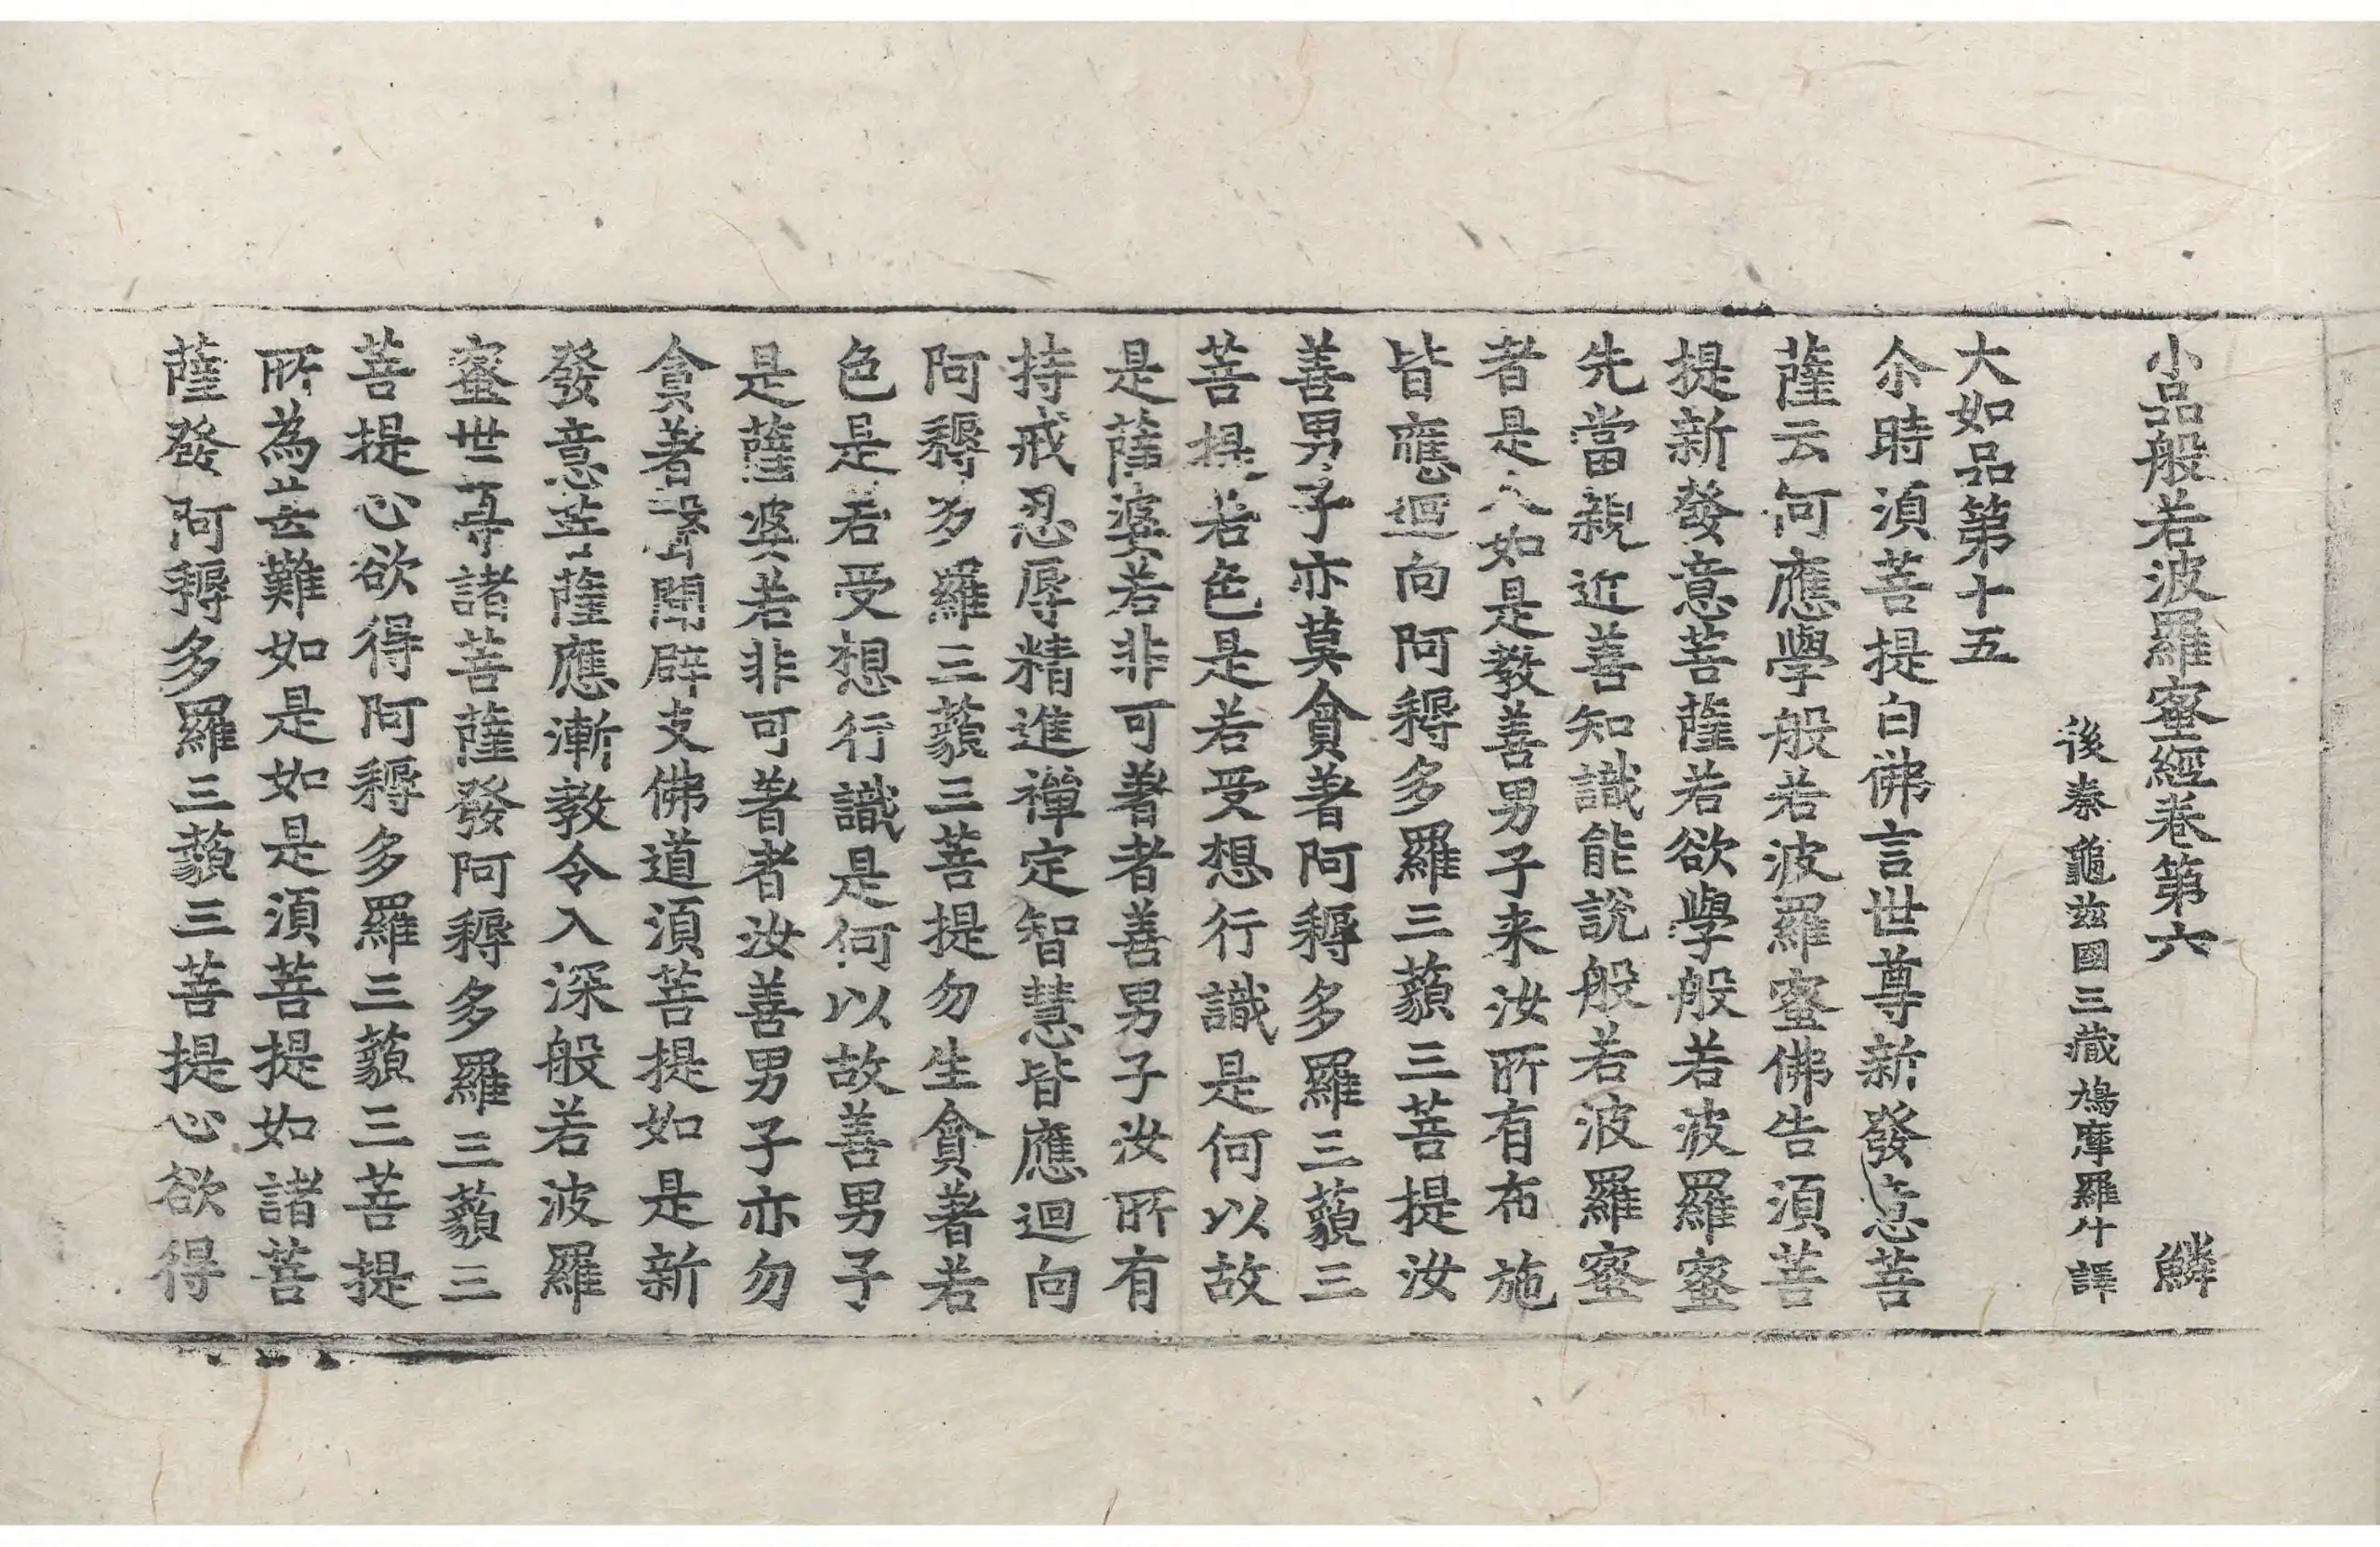 小品般若波羅蜜經卷第六 鱗
後秦龜茲國三藏鳩摩羅什譯
大如品第十五
尒時須菩提白佛言世尊新發意菩
薩云何應學般若波羅蜜佛告須菩
提新發意菩薩若欲學般若波羅蜜
先當親近善知識能說般若波羅蜜
者是人如是教善男子来汝所有布施
皆應迴向阿耨多羅三藐三菩提汝
善男子亦莫貪著阿耨多羅三藐三
菩提若色是若受想行識是何以故
是薩婆若非可著者善男子汝所有
持戒忍辱精進禪定智慧皆應迴向
阿耨多羅三藐三菩提勿生貪著若
色是若受想行識是何以故善男子
是薩婆若非可著者汝善男子亦勿
貪著聲聞辟支佛道須菩提如是新
發意菩薩應漸教令入深般若波羅
蜜世尊諸菩薩發阿耨多羅三藐三
菩提心欲得阿耨多羅三藐三菩提
所為甚難如是如是須菩提如諸菩
薩發阿耨多羅三藐三菩提心欲得